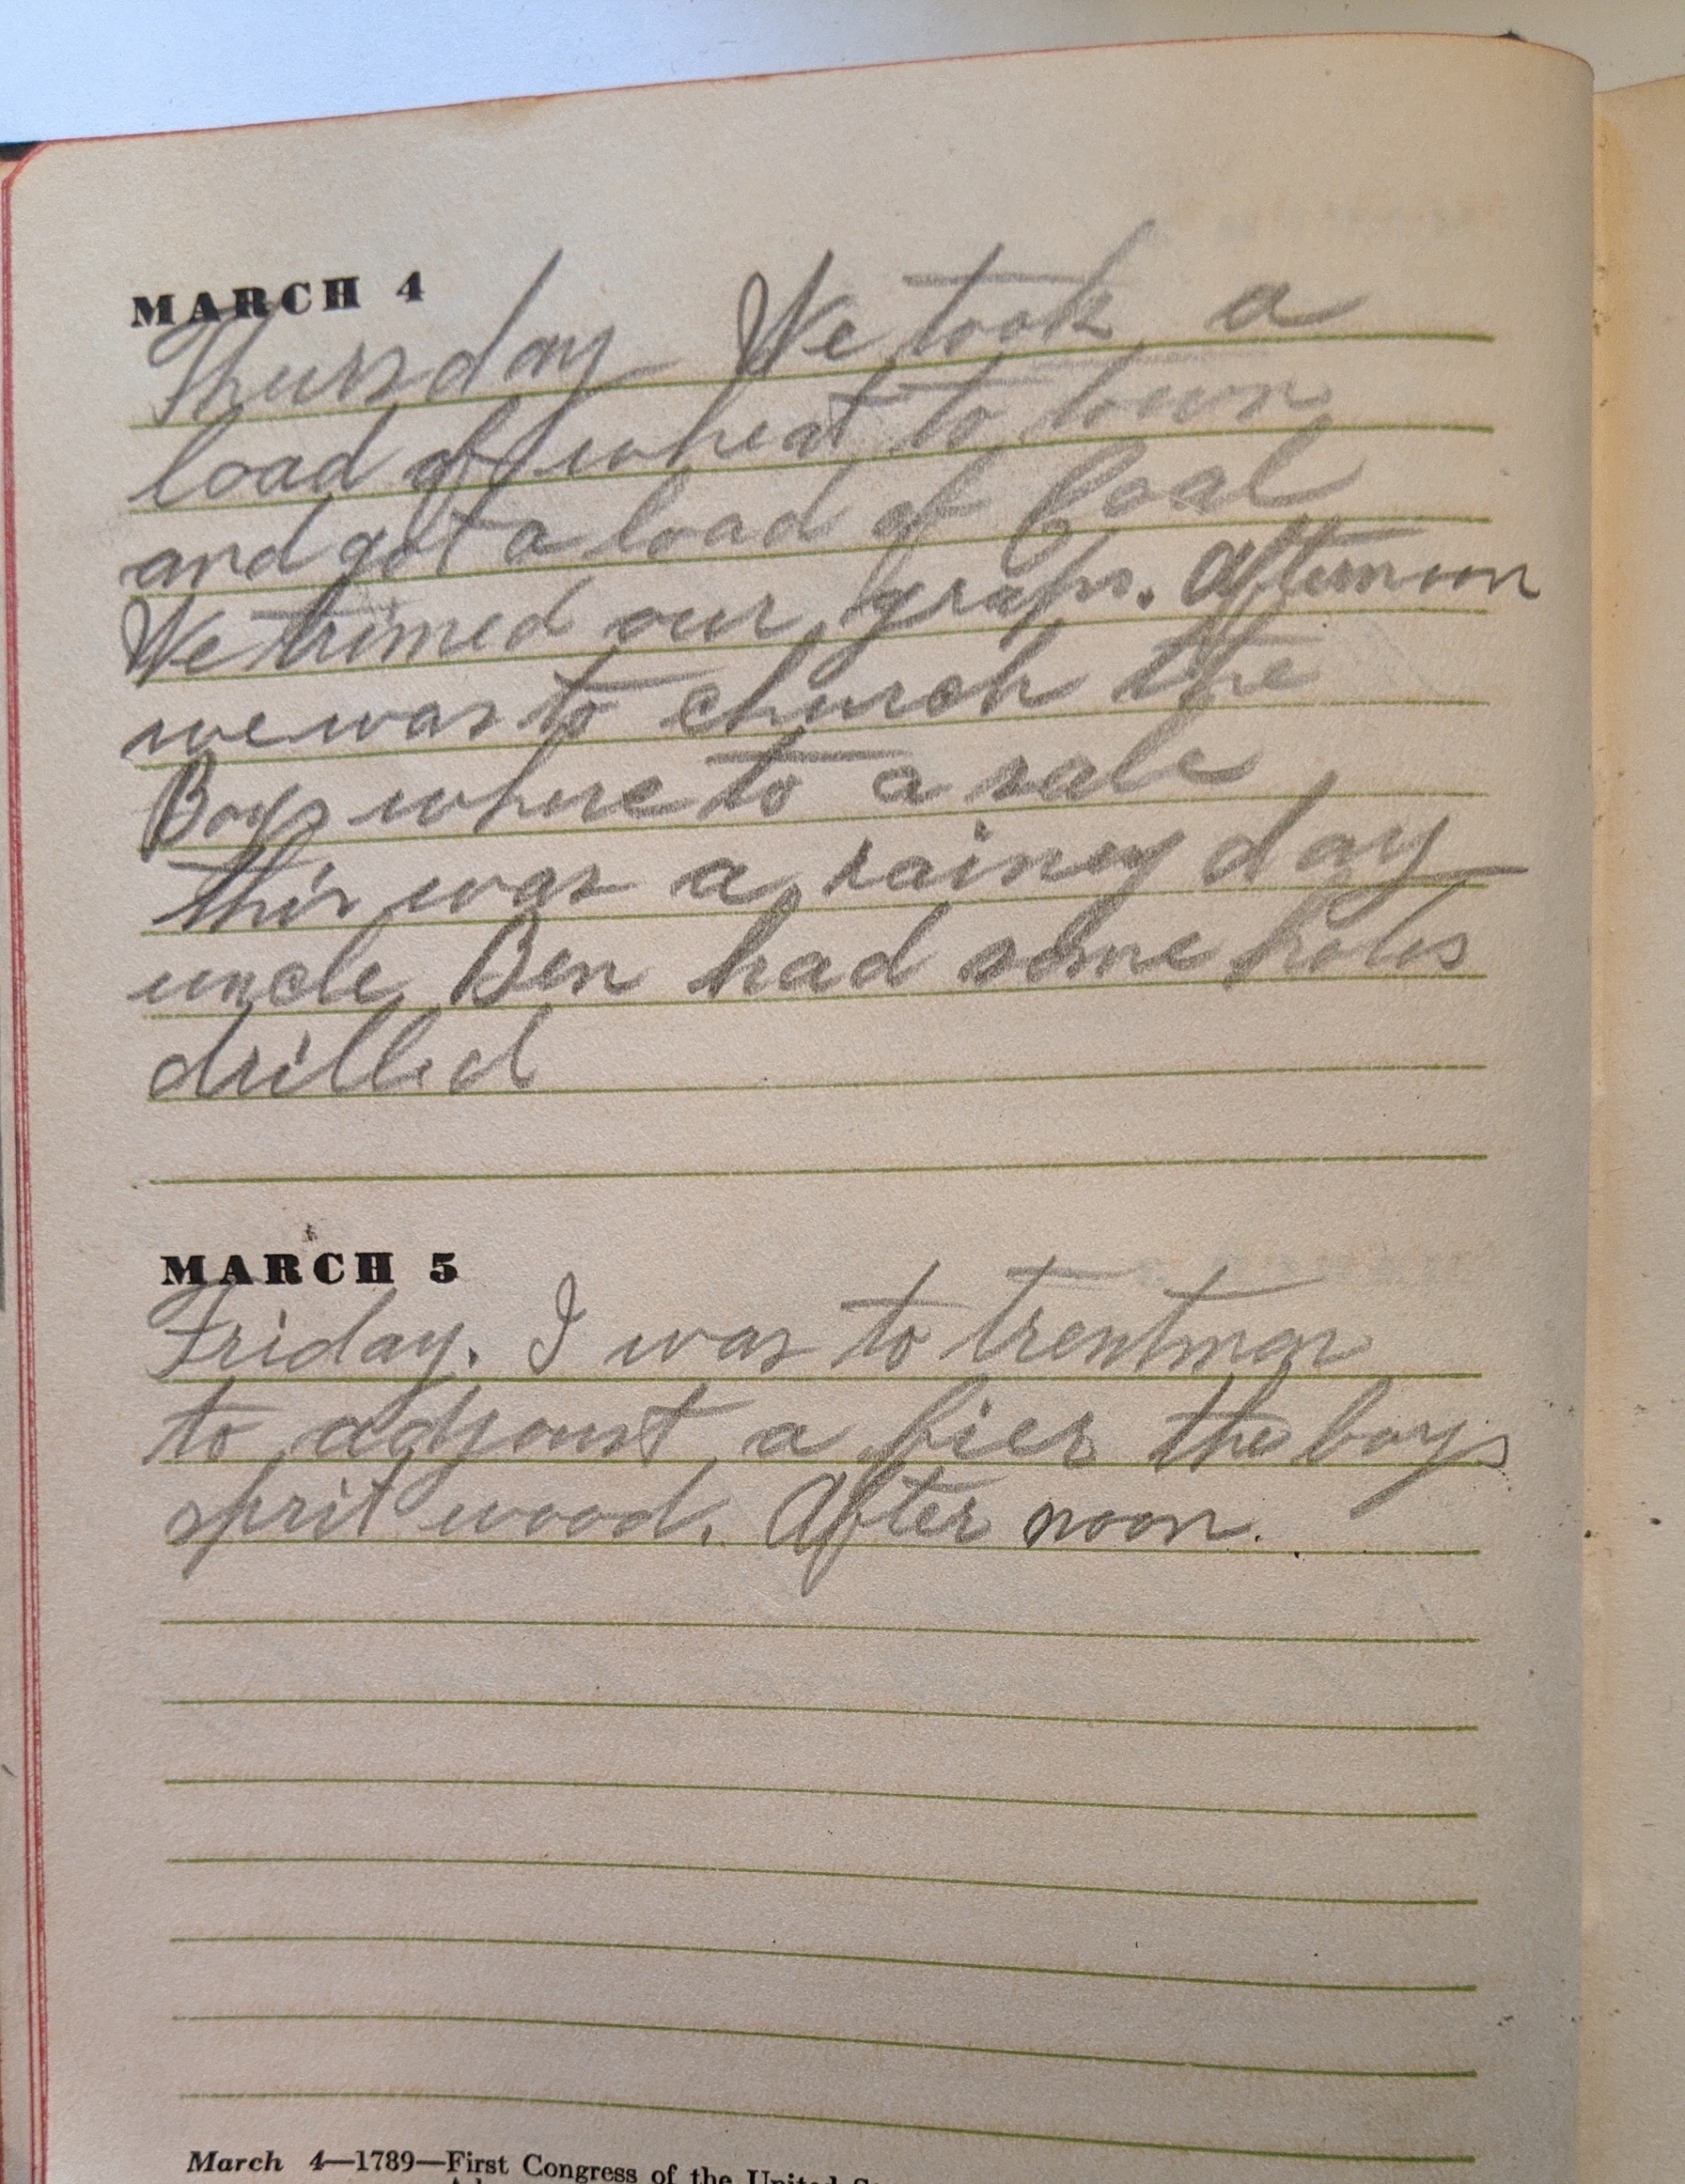 MARCH 4
Thursday We took a
load of wheat to town
and got a load of Coal
We trimed our graps. Afternoon
we was to church the
Boys where to a sale
this was a rainey day
uncle Ben had some holes
drilled
MARCH 5
Friday. I was to trentman
to adjoust a fier the boys
sprit wood. After noon.
March 4—1789—First Congress of the United